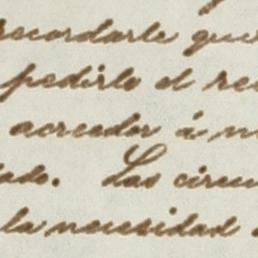 recordarle que
pedirle el re
acreedor á m
ado. Las circu
la necesidad